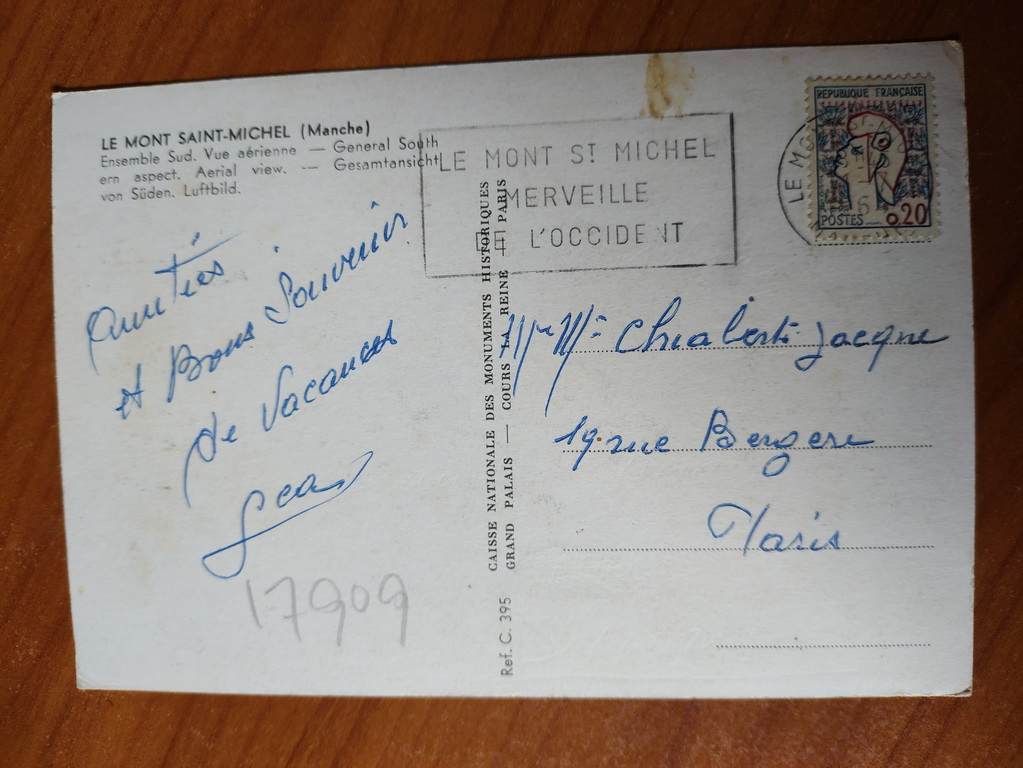 LE MONT SAINT-MICHEL (Manche)
Ensemble Sud. Vue aérienne — General South
ern aspect. Aerial view. — Gesamtansicht
von Süden. Luftbild.
Amitiés
et Bons Souvenir
de Vacances
17909
CAISSE NATIONALE DES MONUMENTS HISTORIQUES
GRAND PALAIS — COURS LA REINE — PARIS
Ref. C. 395
LE MONT ST MICHEL
MERVEILLE
DE L'OCCIDENT
REPUBLIQUE FRANÇAISE
POSTES 0,20
LE MO
Jacque
19 rue Bergere
Paris